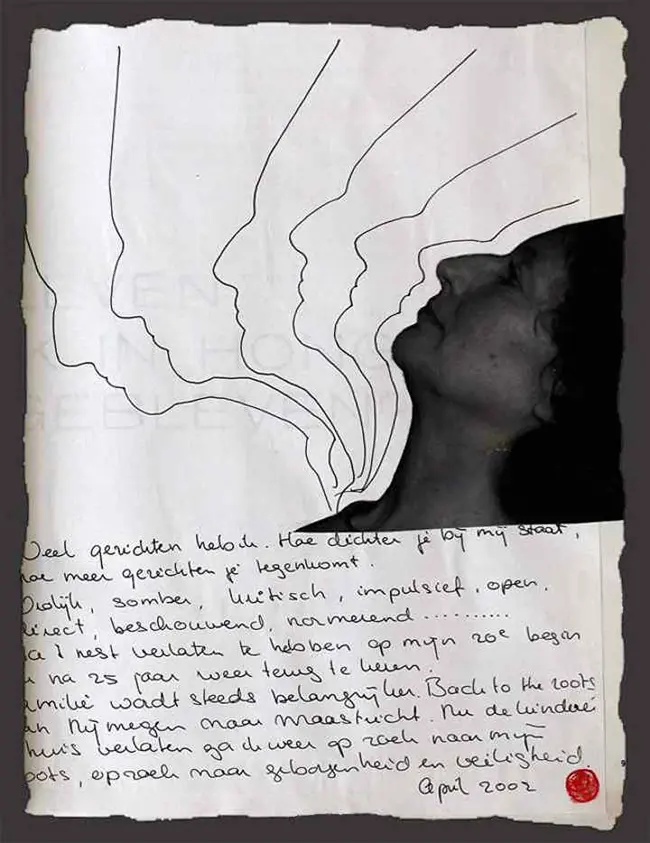 LEVEN
K IN HONG
GEBLEVEN
Veel gezichten heb ik. Hoe dichter je bij mij staat,
hoe meer gezichten je tegenkomt.
Vrolijk, somber, kritisch, impulsief, open,
direct, beschouwend, normerend..........
Na 't nest verlaten te hebben op mijn 20e begin
ik na 25 jaar weer terug te keren.
Familie wordt steeds belangrijker. Back to the roots
van Nijmegen naar Maastricht. Nu de kinderen
huis verlaten ga ik weer op zoek naar mijn
roots, op zoek naar geborgenheid en veiligheid.
April 2002